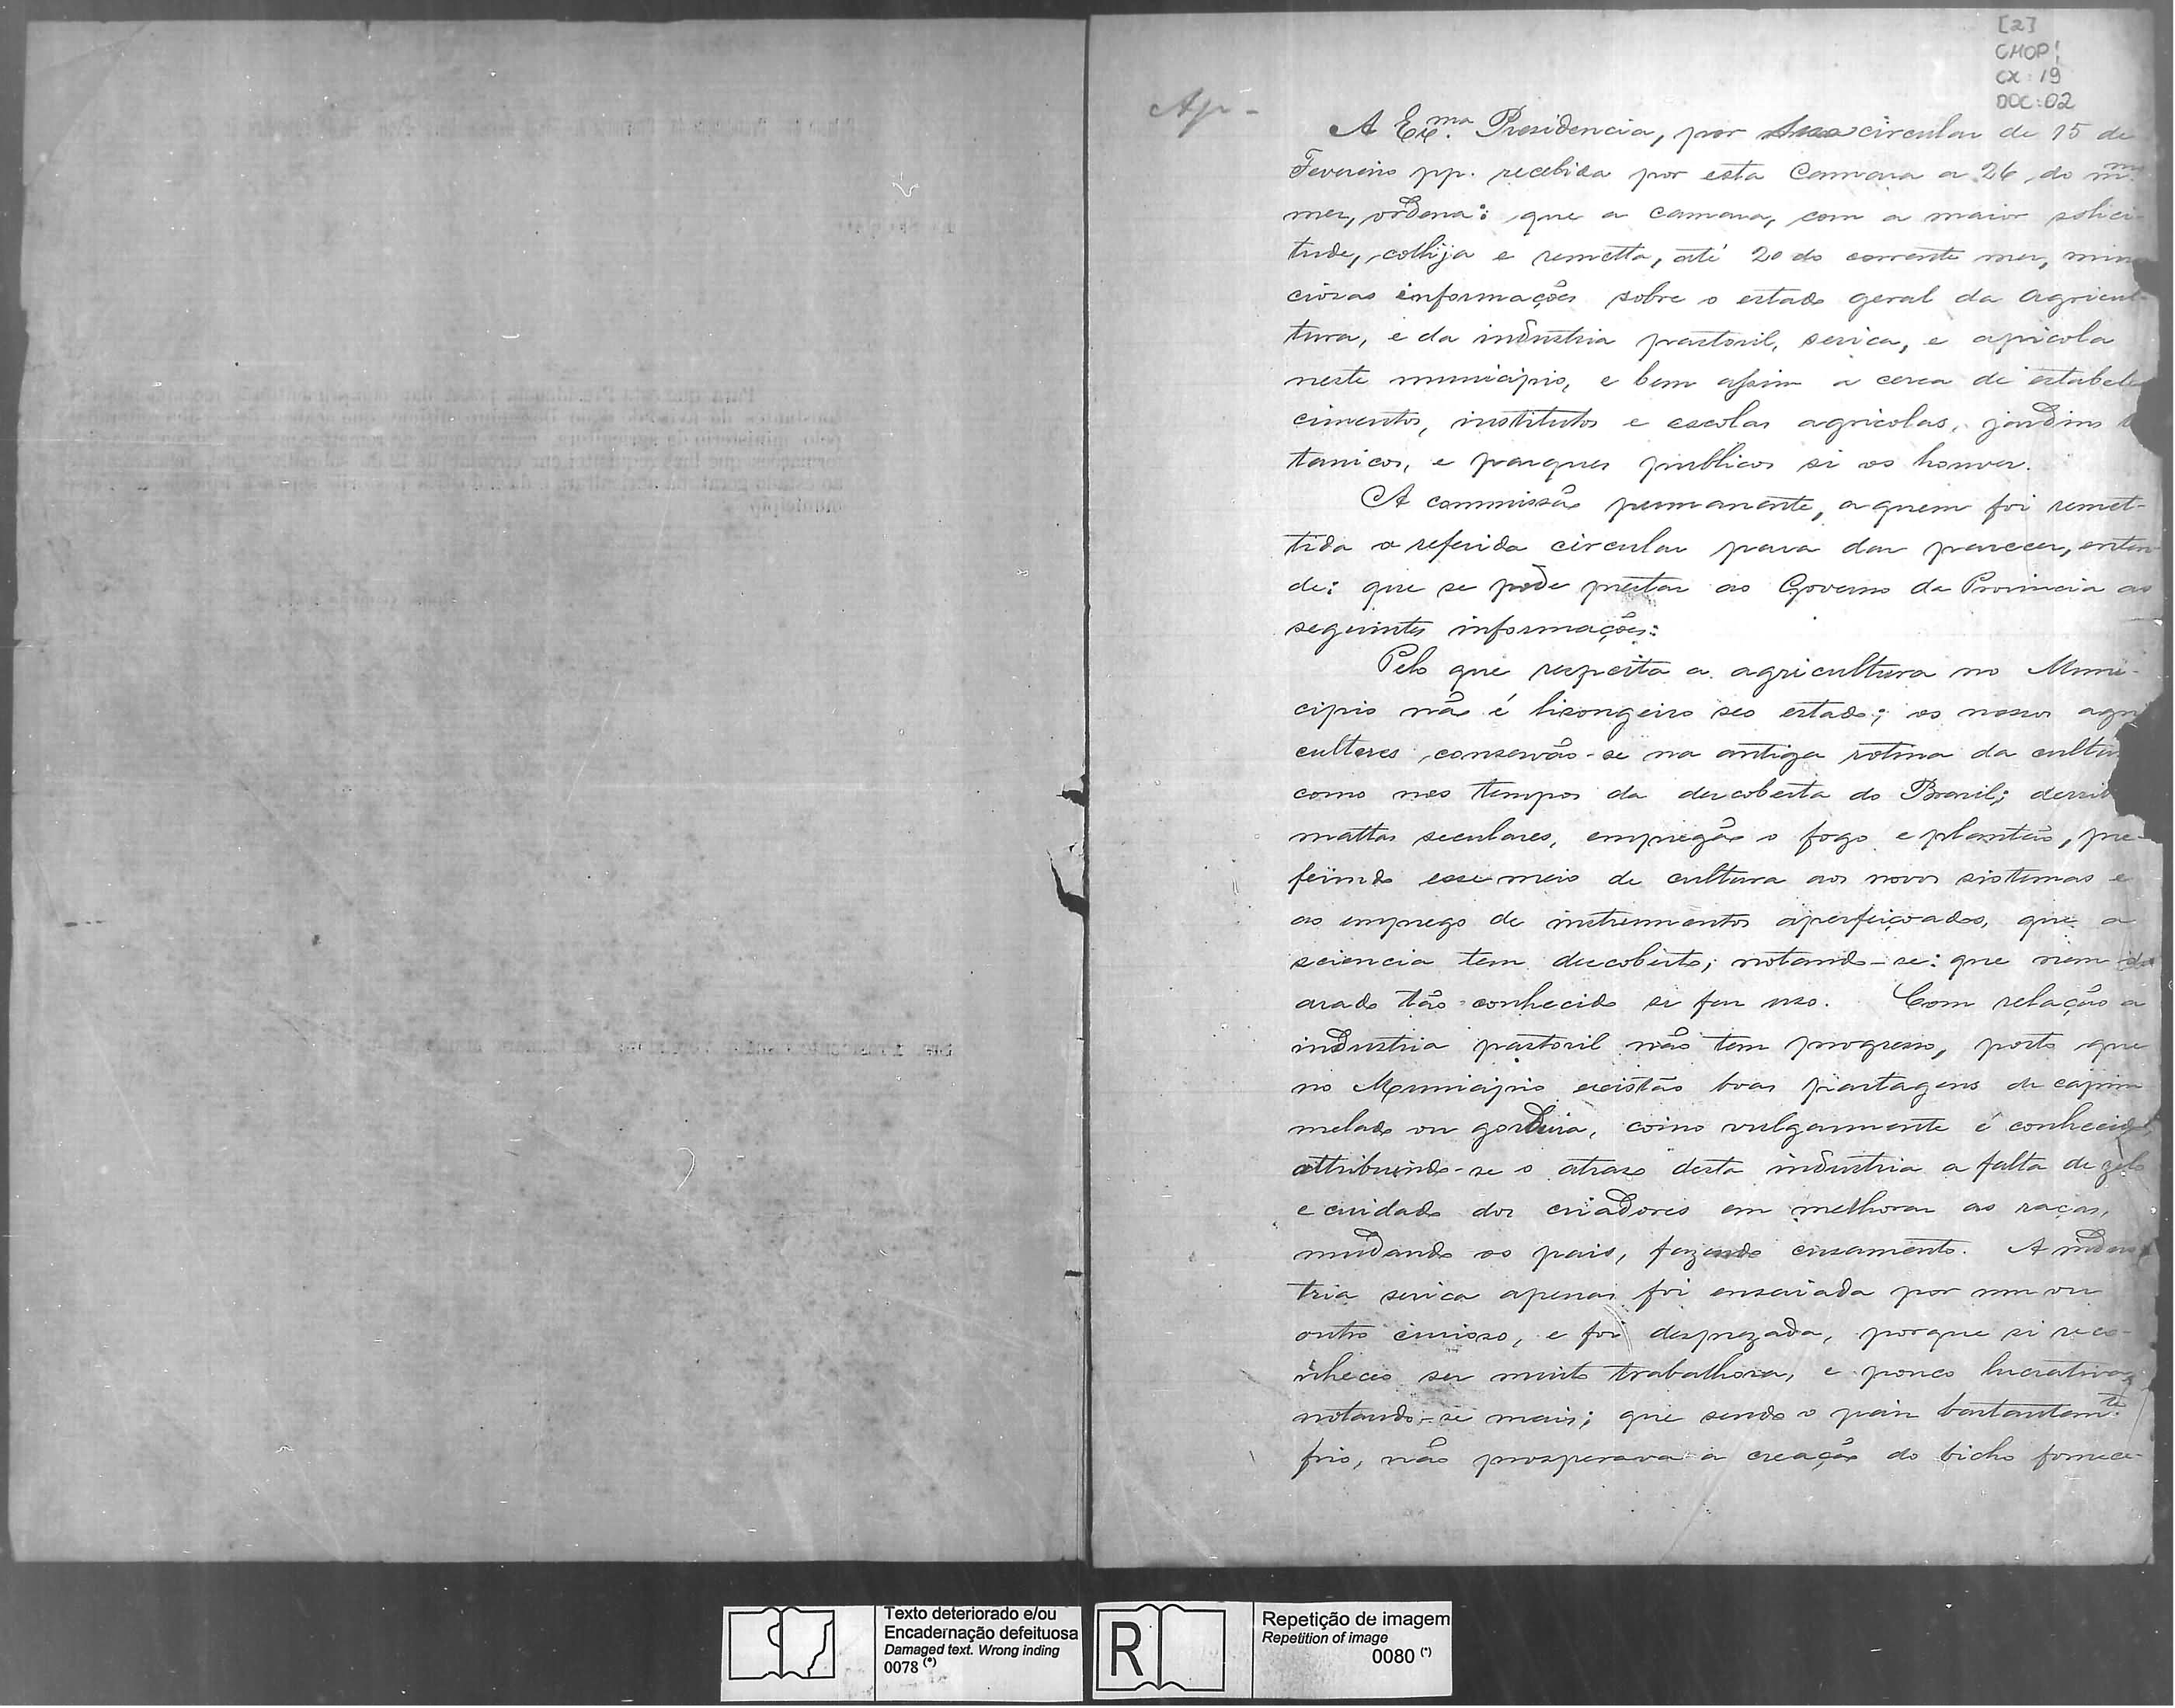 [2]
CMOP!
CX: 19
DOC: 02
Ap-
A Ex.ma Presidencia, por sua circular de 15 de
Fevereiro pp. recebida por esta Camara a 26 do m.mo
mez, ordena: que a camara, com a maior solici-
tude, collija e remetta, até 20 do corrente mez, minu
ciosas informações sobre o estado geral da agricul-
tura, e da industria pastoril, serica, e apicola
neste municipio, e bem assim a cerca de estabele
cimentos, institutos e escolas agricolas, jardins
tanicos, e parques publicos si os houver.
A commissão permanente, a quem foi remet-
tida a referida circular para dar parecer, enten
de: que se póde prestar ao Governo da Provincia as
seguintes informações:
Pelo que respeita a agricultura no Muni-
cipio não é lisongeiro seo estado; os nossos agri
cultores conservão-se na antiga rotina da cultu
como nos tempos da descoberta do Brazil; derrib
mattas seculares, empregão o fogo e plantão, pre-
ferindo esse meio de cultura aos novos sistemas e
ao emprego de instrumentos aperfeiçoados, que a
sciencia tem descoberto; notando-se: que nem do
arado tão conhecido se faz uso. Com relação a
industria pastoril não tem progresso, posto que
no Municipio existão boas pastagens de capim
melado ou gordura, como vulgarmente é conhecido,
attribuindo-se o atraso desta industria a falta de zelo
e cuidado dos criadores em melhorar as raças,
mudando os pais, fazendo crusamento. A indus
tria serica apenas foi ensaiada por um ou
outro curioso, e foi desprezada, porque si reco-
nheceo ser muito trabalhosa, e pouco lucrativa,
notando-se mais; que sendo o paiz bastantem.te
frio, não prosperava a creação do bicho fornece-
Texto deteriorado e/ou
Encadernação defeituosa
Damaged text. Wrong inding
0078 (*)
R
Repetição de imagem
Repetition of image
0080 (*)